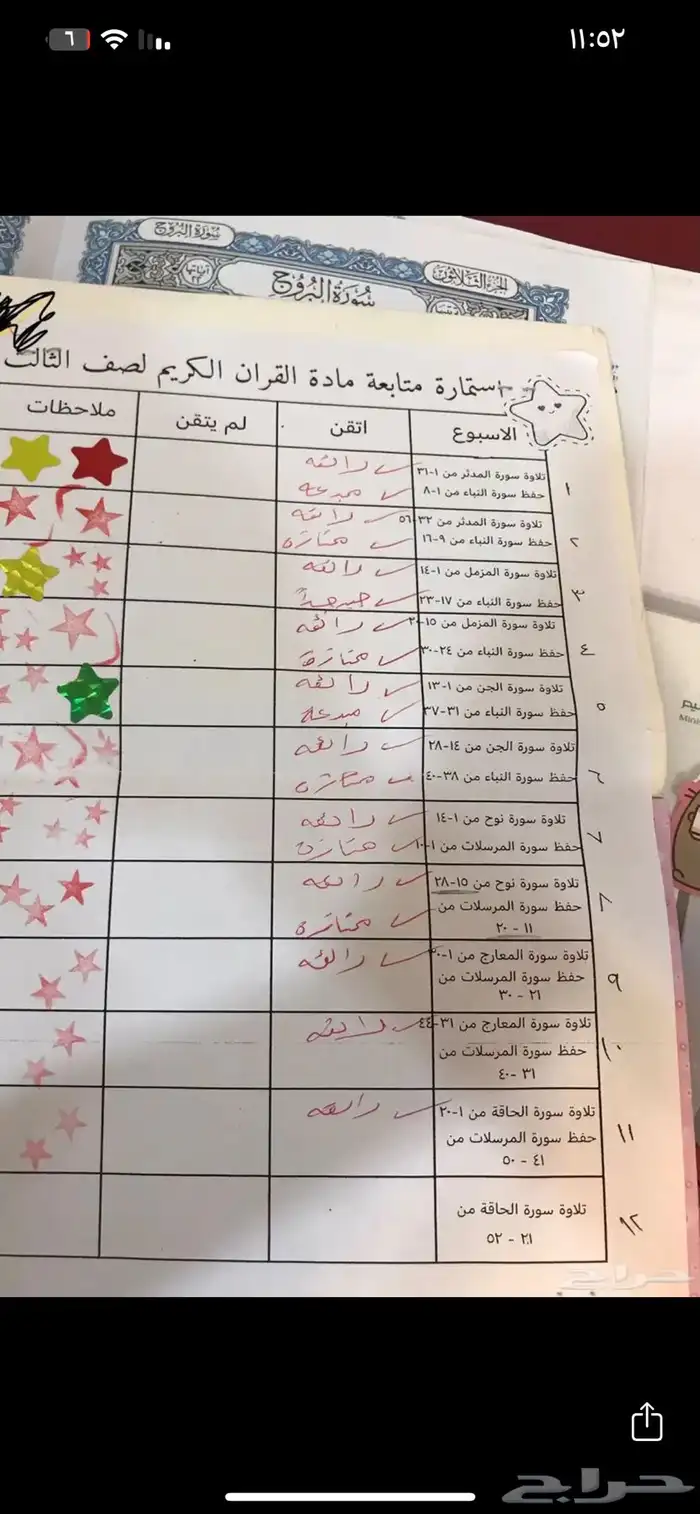 ١١:٥٢
٦
سورة البروج
الجزء الثلاثون
سورة البروج
استمارة متابعة مادة القران الكريم لصف الثالث
الاسبوع
اتقن
لم يتقن
ملاحظات
١
تلاوة سورة المدثر من ١-٣١
رائعه
حفظ سورة النباء من ١-٨
مبدعه
٢
تلاوة سورة المدثر من ٣٢-٥٦
رائعه
حفظ سورة النباء من ٩-١٦
ممتازة
٣
تلاوة سورة المزمل من ١-١٤
رائعه
حفظ سورة النباء من ١٧-٢٣
جيد جداً
٤
تلاوة سورة المزمل من ١٥-٢٠
رائعه
حفظ سورة النباء من ٢٤-٣٠
ممتازة
٥
تلاوة سورة الجن من ١-١٣
رائعه
حفظ سورة النباء من ٣١-٣٧
مبدعه
٦
تلاوة سورة الجن من ١٤-٢٨
رائعه
حفظ سورة النباء من ٣٨-٤٠
ممتازه
٧
تلاوة سورة نوح من ١-١٤
رائعه
حفظ سورة المرسلات من ١-١٠
ممتازة
٨
تلاوة سورة نوح من ١٥-٢٨
رائعه
حفظ سورة المرسلات من
١١ - ٢٠
ممتازه
٩
تلاوة سورة المعارج من ١-٣٠
رائعه
حفظ سورة المرسلات من
٢١ - ٣٠
١٠
تلاوة سورة المعارج من ٣١-٤٤
رائعه
حفظ سورة المرسلات من
٣١ -٤٠
١١
تلاوة سورة الحاقة من ١-٢٠
رائعه
حفظ سورة المرسلات من
٤١ - ٥٠
١٢
تلاوة سورة الحاقة من
٢١ - ٥٢
حراج
حراج